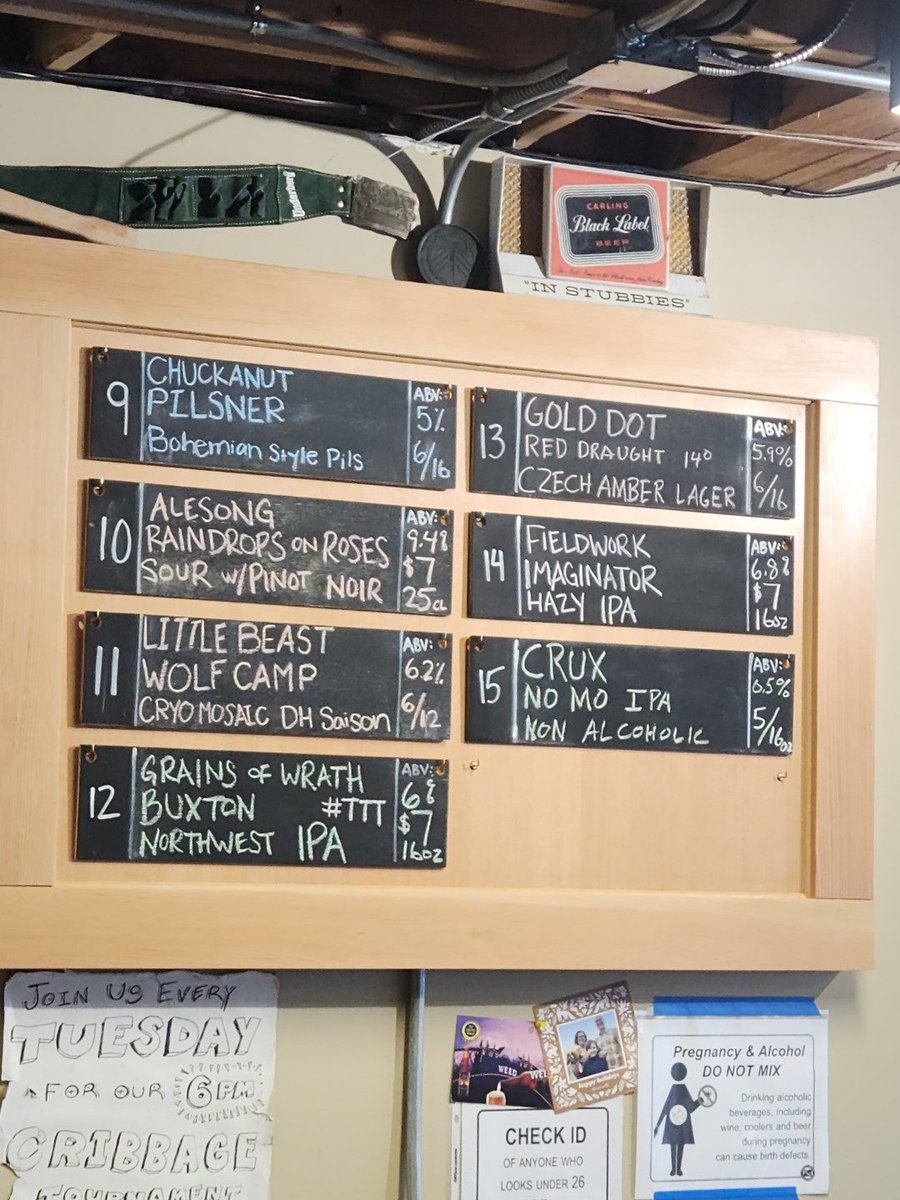 Underberg
CARLING
Black Label
BEER
"IN STUBBIES"
9
CHUCKANUT
PILSNER
Bohemian Style Pils
ABV:
5%
6/16
10
ALESONG
RAINDROPS ON ROSES
SOUR W/PINOT NOIR
ABV:
9.4%
$7
25cl
11
LITTLE BEAST
WOLF CAMP
CRYO MOSAIC DH Saison
ABV:
6.2%
6/12
12
GRAINS OF WRATH
BUXTON #TTT
NORTHWEST IPA
ABV:
6%
$7
16oz
13
GOLD DOT
RED DRAUGHT 14°
CZECH AMBER LAGER
ABV:
5.9%
6/16
14
FIELDWORK
IMAGINATOR
HAZY IPA
ABV:
6.8%
$7
16oz
15
CRUX
NO MO IPA
NON ALCOHOLIC
ABV:
0.5%
5/16oz
JOIN US EVERY
TUESDAY
FOR OUR 6PM
CRIBBAGE
TOURNAMENT
WEED
happy holidays
CHECK ID
OF ANYONE WHO
LOOKS UNDER 26
Pregnancy & Alcohol
DO NOT MIX
Drinking alcoholic
beverages, including
wine, coolers and beer
during pregnancy
can cause birth defects.